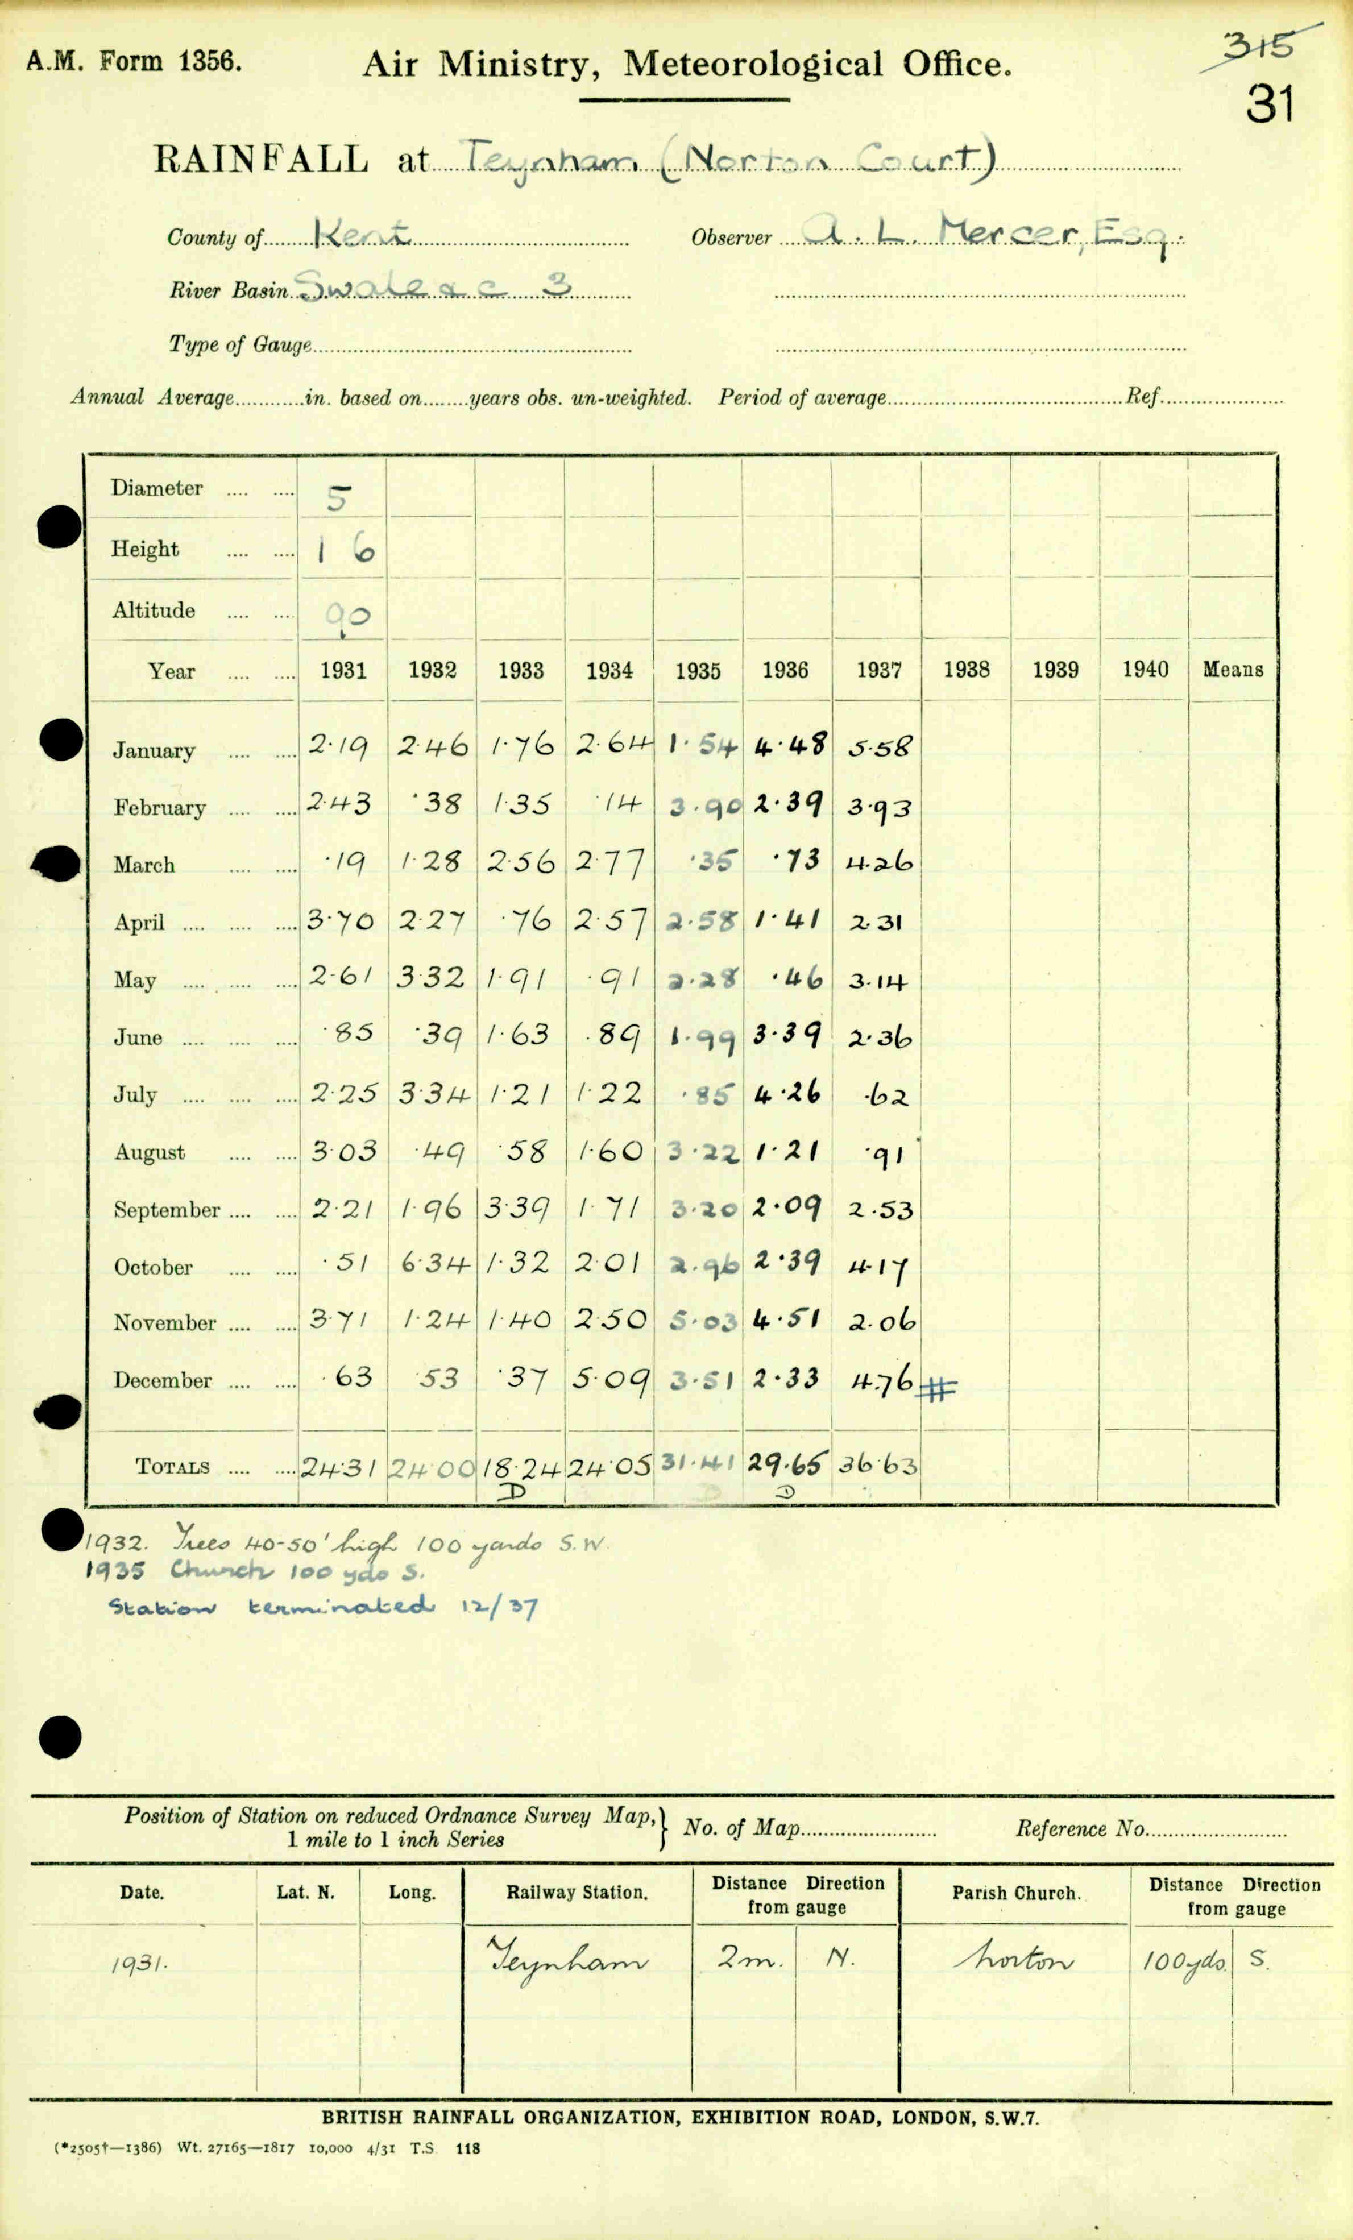 A.M. Form 1356.
Air Ministry, Meteorological Office.
315
31
RAINFALL at Teynham (Norton Court)
County of Kent Observer A. L. Mercer, Esq.
River Basin Swale &c 3
Type of Gauge
Annual Average in. based on years obs. un-weighted. Period of average Ref.
Diameter 5
Height 1 6
Altitude 90
Year 1931 1932 1933 1934 1935 1936 1937 1938 1939 1940 Means
January 2·19 2·46 1·76 2·64 1·54 4·48 5·58
February 2·43 ·38 1·35 ·14 3·90 2·39 3·93
March ·19 1·28 2·56 2·77 ·35 ·73 4·26
April 3·70 2·27 ·76 2·57 2·58 1·41 2·31
May 2·61 3·32 1·91 ·91 2·28 ·46 3·14
June ·85 ·39 1·63 ·89 1·99 3·39 2·36
July 2·25 3·34 1·21 1·22 ·85 4·26 ·62
August 3·03 ·49 ·58 1·60 3·22 1·21 ·91
September 2·21 1·96 3·39 1·71 3·20 2·09 2·53
October ·51 6·34 1·32 2·01 2·96 2·39 4·17
November 3·71 1·24 1·40 2·50 5·03 4·51 2·06
December ·63 ·53 ·37 5·09 3·51 2·33 4·76 #
TOTALS 24·31 24·00 18·24 24·05 31·41 29·65 36·63
D D D
1932. Trees 40-50' high 100 yards S.W.
1935 Church 100 yds S.
Station terminated 12/37
Position of Station on reduced Ordnance Survey Map, 1 mile to 1 inch Series } No. of Map Reference No.
Date. Lat. N. Long. Railway Station. Distance Direction from gauge Parish Church. Distance Direction from gauge
1931. Teynham 2m. N. Norton 100yds. S.
BRITISH RAINFALL ORGANIZATION, EXHIBITION ROAD, LONDON, S.W.7.
(*2505†—1386) Wt. 27165—1817 10,000 4/31 T.S. 118